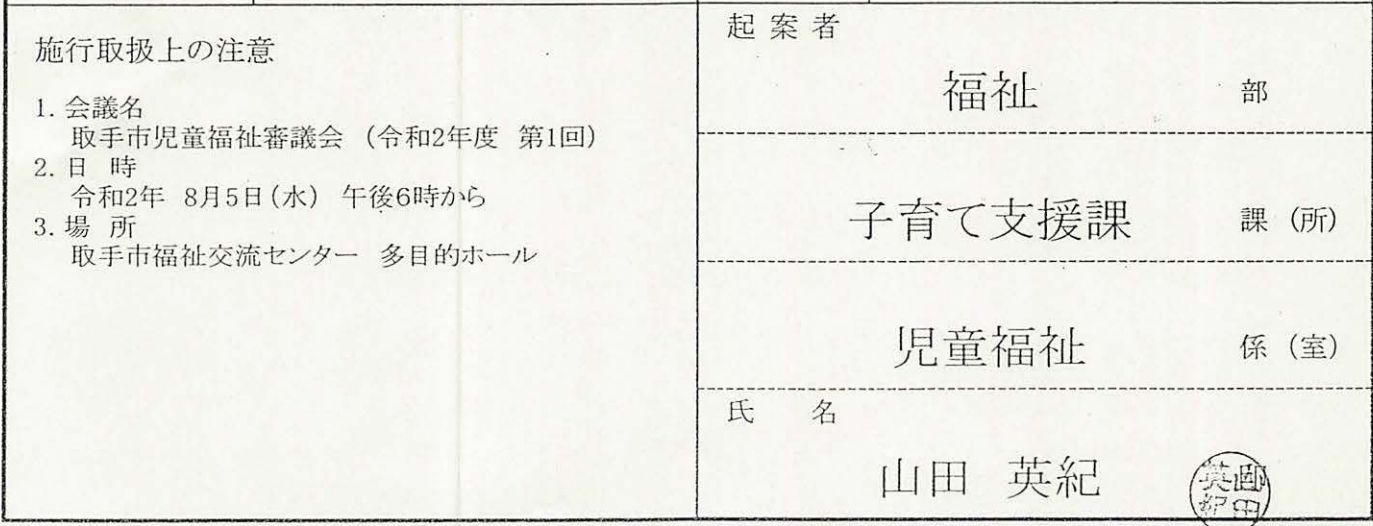 施行取扱上の注意
1. 会議名
取手市児童福祉審議会 (令和2年度 第1回)
2. 日 時
令和2年 8月5日(水) 午後6時から
3. 場 所
取手市福祉交流センター 多目的ホール
起 案 者
福祉 部
子育て支援課 課 (所)
児童福祉 係 (室)
氏 名
山田 英紀